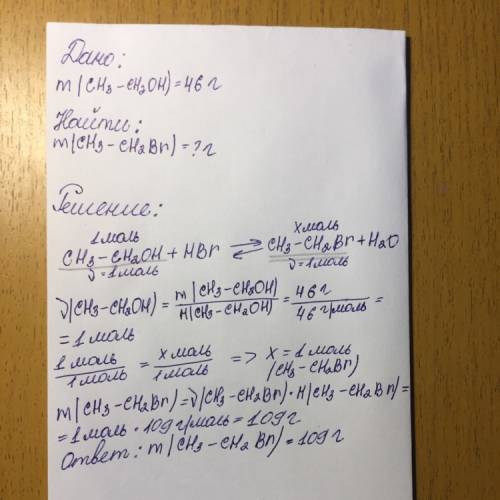 Дано:
m(CH3-CH2OH)=46 г
Найти:
m(CH3-CH2Br)=? г
Решение:
1 моль x моль
CH3-CH2OH + HBr ⇄ CH3-CH2Br + H2O
ν=1 моль ν=1 моль
ν(CH3-CH2OH) = m(CH3-CH2OH)/M(CH3-CH2OH) = 46 г/46 г/моль =
= 1 моль
1 моль/1 моль = x моль/1 моль => x = 1 моль
(CH3-CH2Br)
m(CH3-CH2Br)=ν(CH3-CH2Br)·M(CH3-CH2Br)=
= 1 моль · 109 г/моль = 109 г
Ответ: m(CH3-CH2Br)=109 г